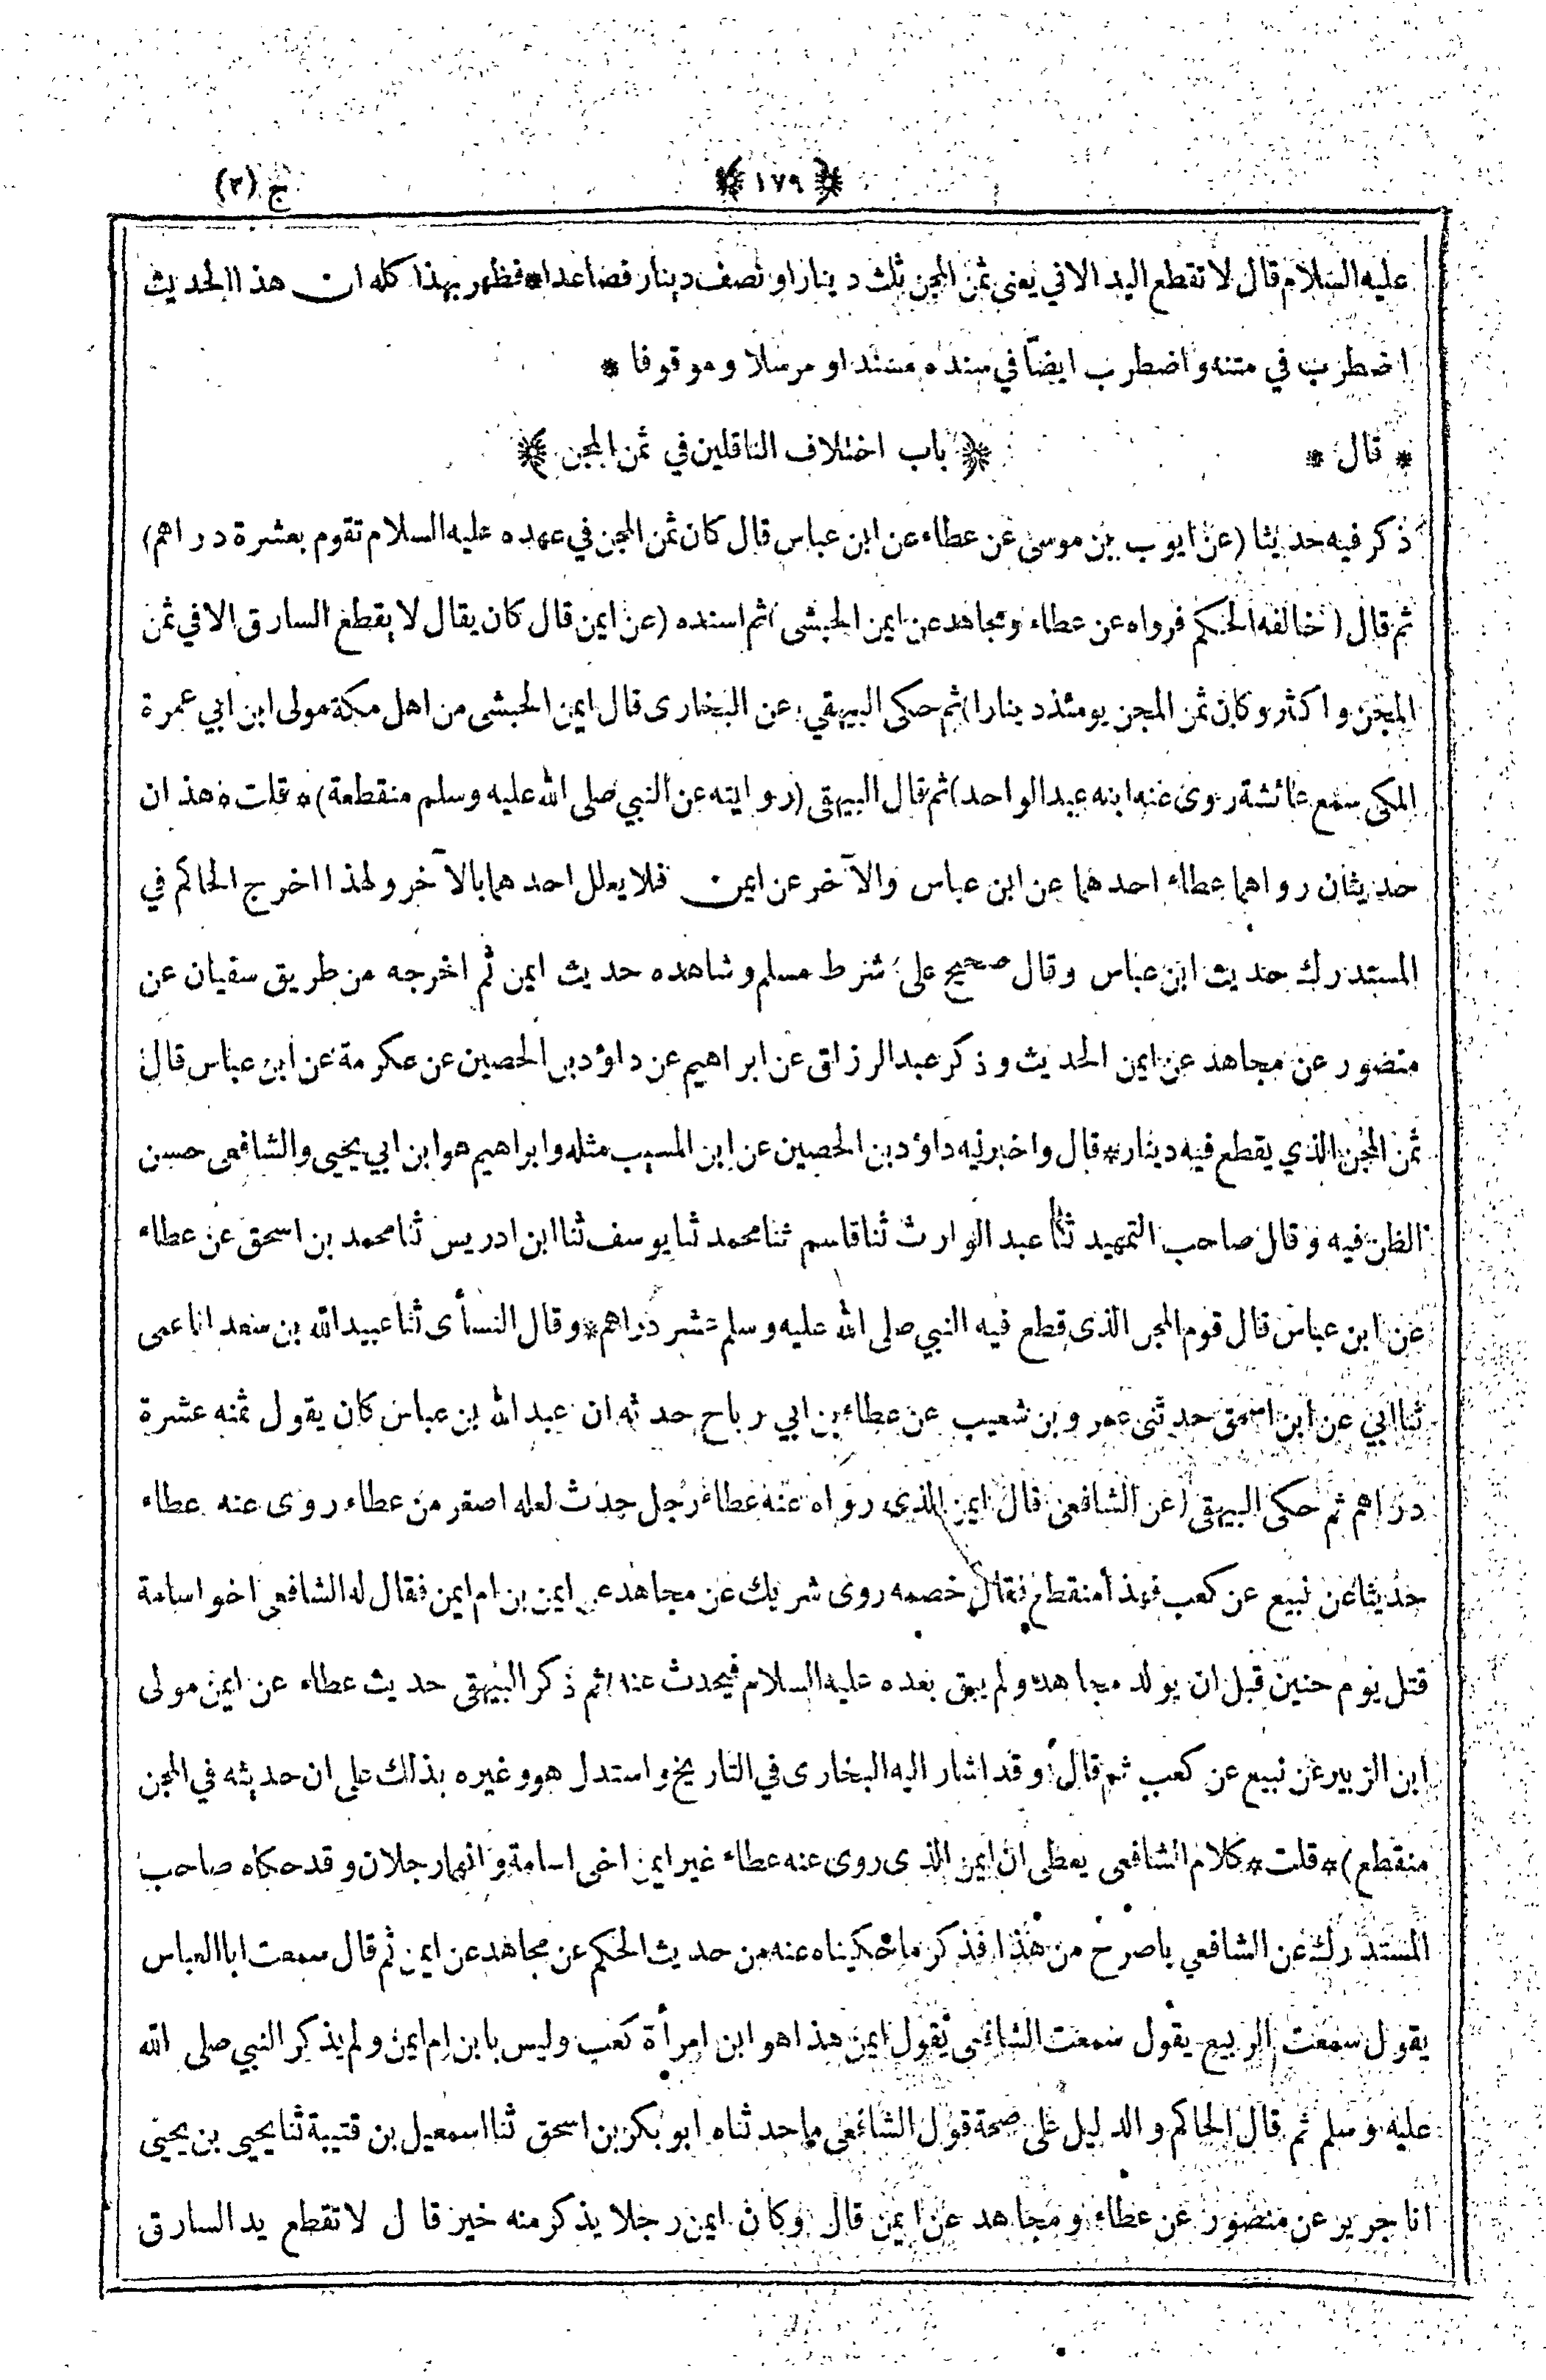 ﴿ ١٧٩ ﴾ ج (٢)
عليه السلام قال لا تقطع اليد الا في يعنى ثمن المجن ثلث دينار او نصف دينار فصاعدا * فظهر بهذا كله ان هذا الحديث
اضطرب في متنه واضطرب ايضا في سنده مسندا ومرسلا وموقوفا *
* قال * ﴿ باب اختلاف الناقلين في ثمن المجن ﴾
ذكر فيه حديثا (عن ايوب بن موسى عن عطاء عن ابن عباس قال كان ثمن المجن في عهده عليه السلام تقوم بعشرة دراهم)
ثم قال (خالفه الحكم فرواه عن عطاء ومجاهد عن ايمن الحبشى) ثم اسنده (عن ايمن قال كان يقال لا يقطع السارق الا في ثمن
المجن واكثر وكان ثمن المجن يومئذ دينارا) ثم حكى البيهقي (عن البخارى قال ايمن الحبشى من اهل مكة مولى ابن ابي عمرة
المكى سمع عائشة روى عنه ابنه عبد الواحد) ثم قال البيهقى (روايته عن النبي صلى الله عليه وسلم منقطعة) * قلت * هذان
حديثان رواهما عطاء احدهما عن ابن عباس والآخر عن ايمن فلا يعلل احدهما بالآخر ولهذا اخرج الحاكم في
المستدرك حديث ابن عباس وقال صحيح على شرط مسلم وشاهده حديث ايمن ثم اخرجه من طريق سفيان عن
منصور عن مجاهد عن ايمن الحديث وذكر عبد الرزاق عن ابراهيم عن داؤد بن الحصين عن عكرمة عن ابن عباس قال
ثمن المجن الذي يقطع فيه دينار * قال واخبرنيه داؤد بن الحصين عن ابن المسيب مثله وابراهيم هو ابن ابي يحيى والشافعى حسن
الظن فيه وقال صاحب التمهيد ثنا عبد الوارث ثنا قاسم ثنا محمد ثنا يوسف ثنا ابن ادريس ثنا محمد بن اسحق عن عطاء
عن ابن عباس قال قوم المجن الذى قطع فيه النبي صلى الله عليه وسلم عشر دراهم * وقال النسأى ثنا عبيد الله بن سعد انا عمى
ثنا ابي عن ابن اسحق حدثنى عمرو بن شعيب عن عطاء بن ابي رباح حدثه ان عبد الله بن عباس كان يقول ثمنه عشرة
دراهم ثم حكى البيهقى (عن الشافعى قال ايمن الذى رواه عنه عطاء رجل حدث لعله اصغر من عطاء روى عنه عطاء
حديثا عن تبيع عن كعب فهذا منقطع فقال خصمه روى شريك عن مجاهد عن ايمن بن ام ايمن فقال له الشافعى اخو اسامة
قتل يوم حنين قبل ان يولد مجاهد ولم يبق بعده عليه السلام فيحدث عنه) ثم ذكر البيهقى حديث عطاء عن ايمن مولى
ابن الزبير عن تبيع عن كعب ثم قال (وقد اشار اليه البخارى في التاريخ واستدل هو وغيره بذلك على ان حديثه في المجن
منقطع) * قلت * كلام الشافعى يعطى ان ايمن الذى روى عنه عطاء غير ايمن اخى اسامة وانهما رجلان وقد حكاه صاحب
المستدرك عن الشافعي باصرح من هذا فذكر ما حكيناه عنه من حديث الحكم عن مجاهد عن ايمن ثم قال سمعت ابا العباس
يقول سمعت الربيع يقول سمعت الشافعى يقول ايمن هذا هو ابن امرأة كعب وليس بابن ام ايمن ولم يذكر النبي صلى الله
عليه وسلم ثم قال الحاكم والدليل على صحة قول الشافعى ما حدثناه ابو بكر بن اسحق ثنا اسمعيل بن قتيبة ثنا يحيى بن يحيى
انا جرير عن منصور عن عطاء ومجاهد عن ايمن قال وكان ايمن رجلا يذكر منه خير قال لا تقطع يد السارق